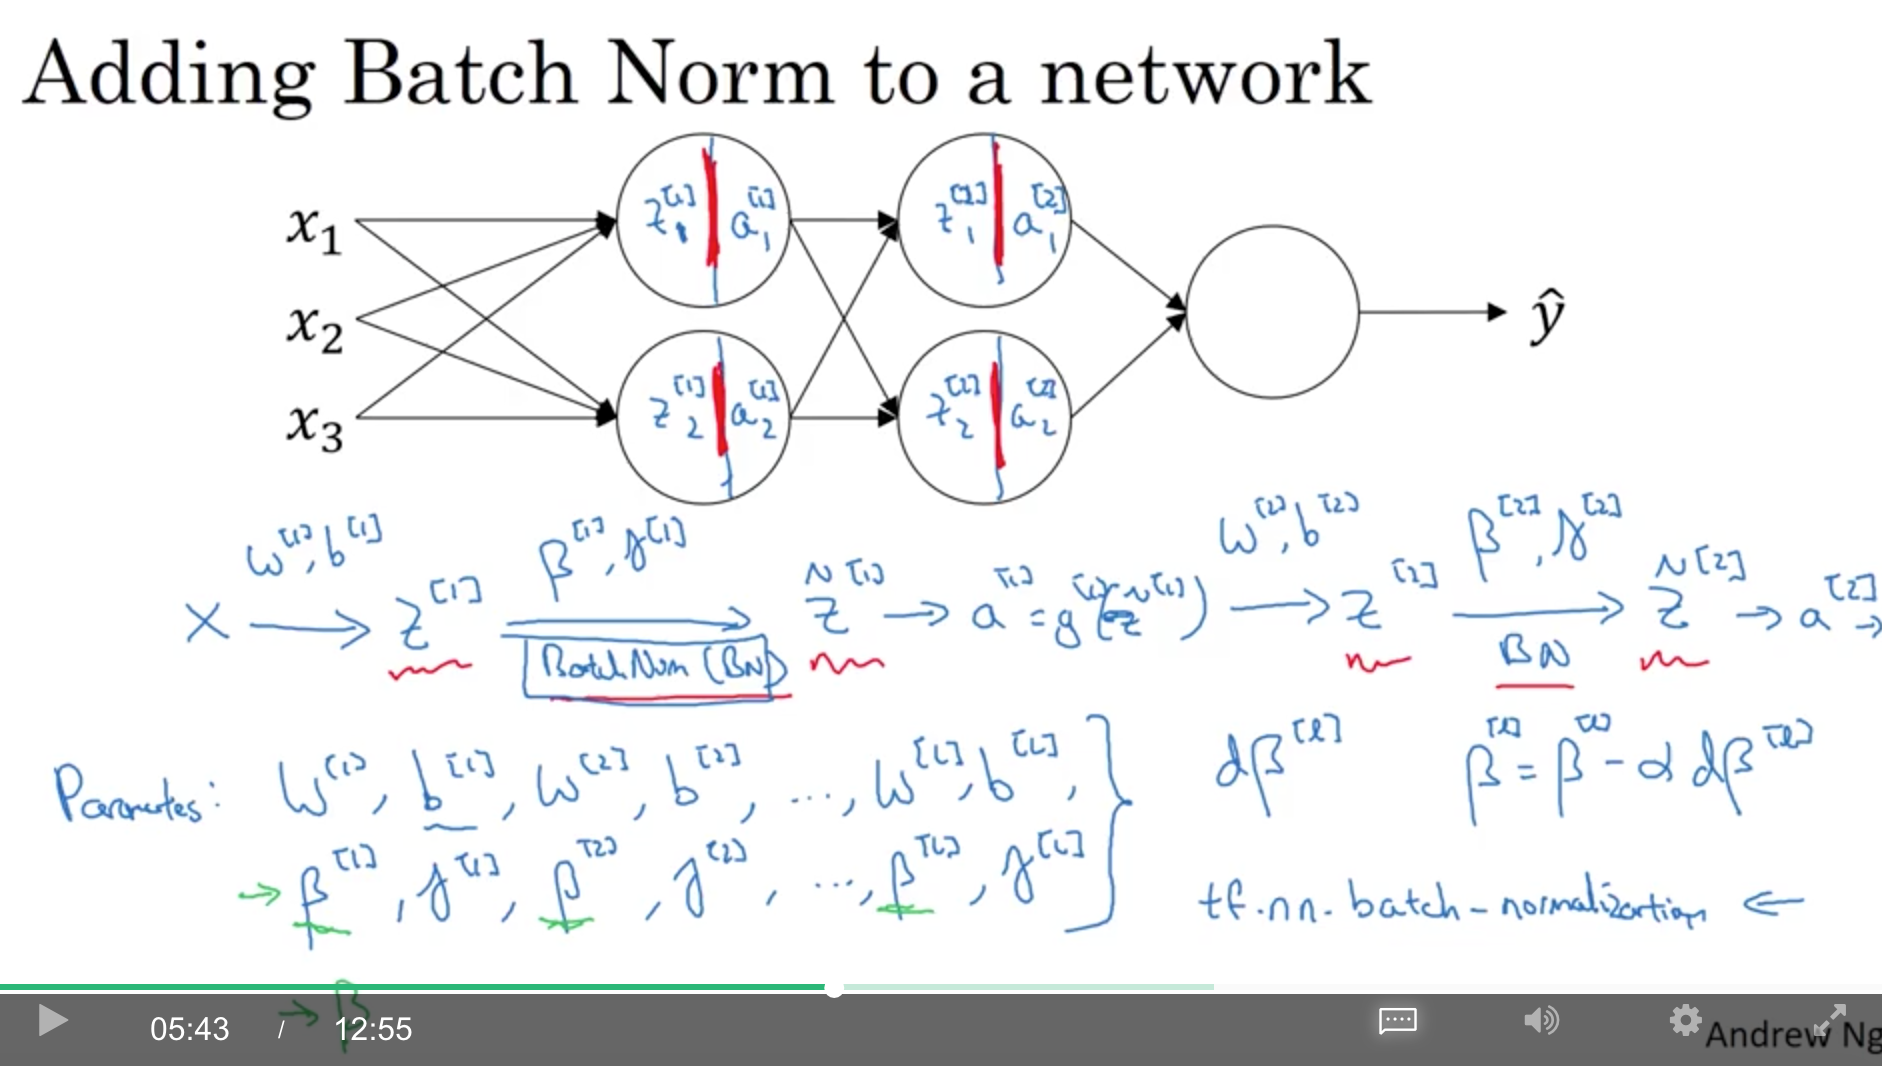 Adding Batch Norm to a network
x₁
x₂
x₃
z₁^[1] a₁^[1]
z₂^[1] a₂^[1]
z₁^[2] a₁^[2]
z₂^[2] a₂^[2]
ŷ
X → (w^[1], b^[1]) z^[1] → (β^[1], γ^[1]) z̃^[1] → a^[1] = g^[1](z̃^[1]) → (w^[2], b^[2]) z^[2] → (β^[2], γ^[2]) z̃^[2] → a^[2] →
Batch Norm (BN)
BN
Parameters: W^[1], b^[1], W^[2], b^[2], ..., W^[L], b^[L],
→ β^[1], γ^[1], β^[2], γ^[2], ..., β^[L], γ^[L]
dβ^[l]
β^[l] = β^[l] - α dβ^[l]
tf.nn.batch-normalization ←
→ β
05:43 / 12:55
Andrew Ng